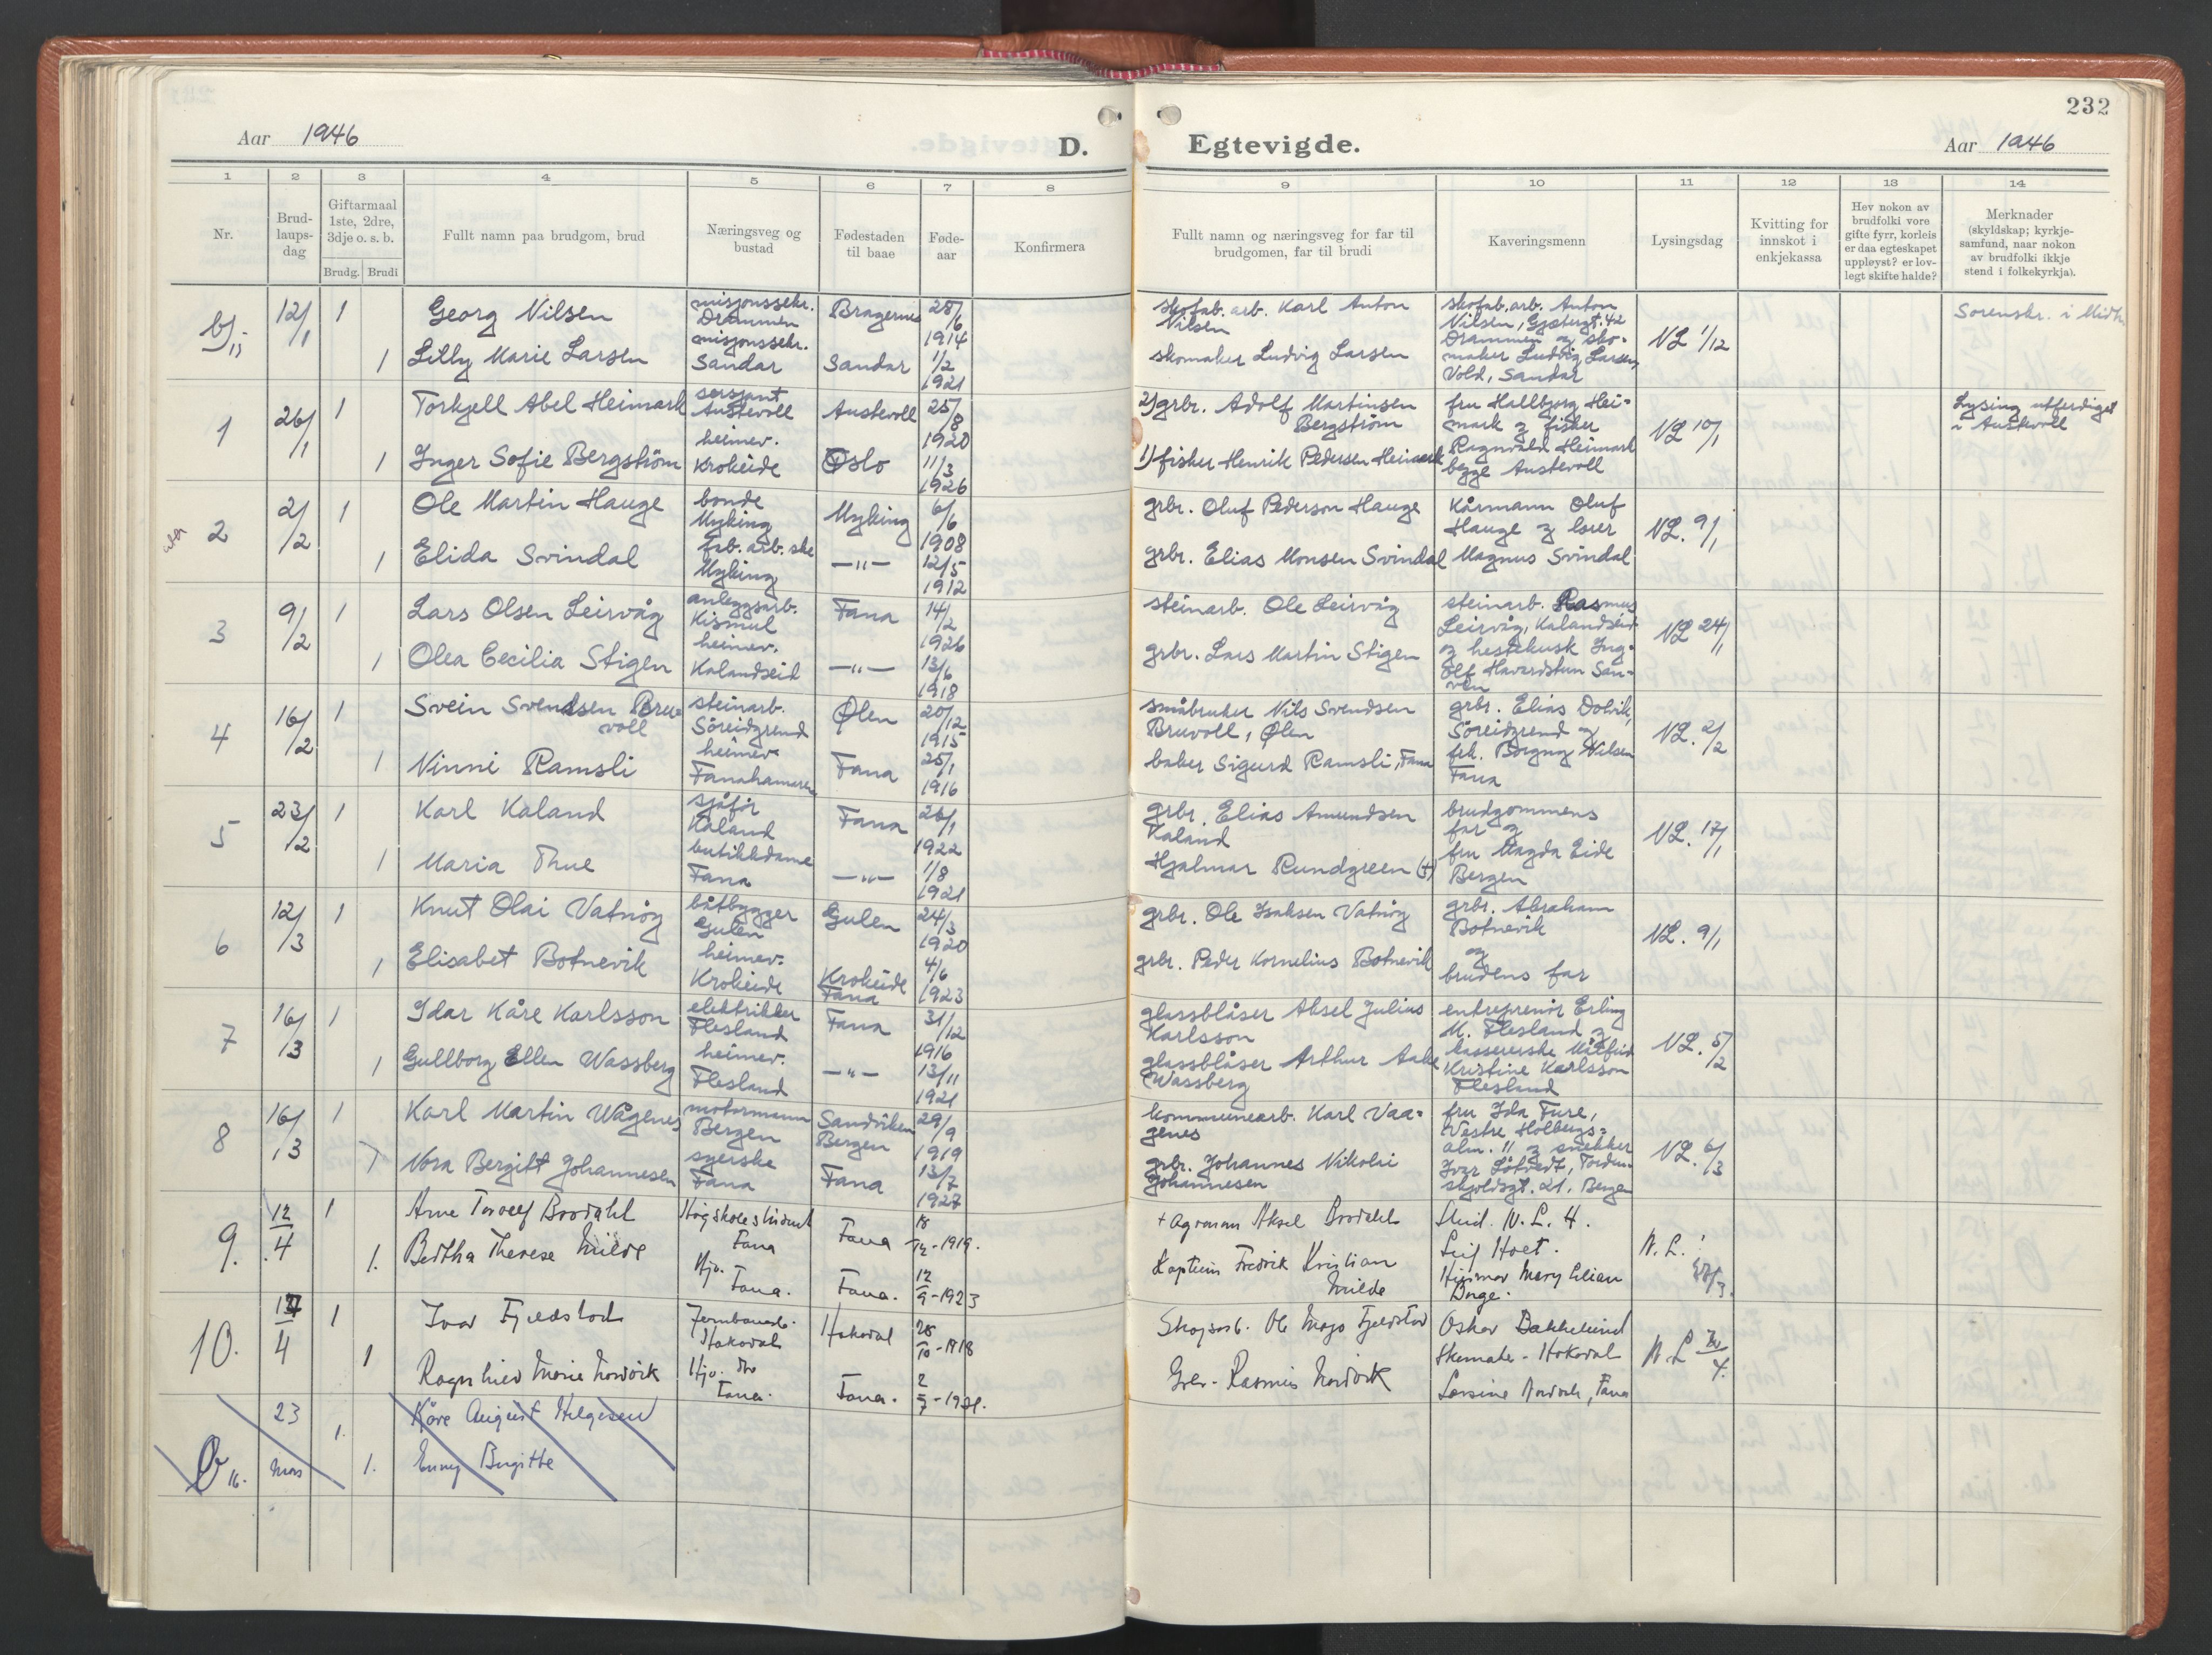 232
Aar 1946
D.
Egtevigde.
Aar 1946
1 2 3 4 5 6 7 8
9 10 11 12 13 14
Nr.
Brud-
laups-
dag
Giftarmaal
1ste, 2dre,
3dje o. s. b.
Brudg. Brudi
Fullt namn paa brudgom, brud
Næringsveg og
bustad
Fødestaden
til baae
Føde-
aar
Konfirmera
Fullt namn og næringsveg for far til
brudgomen, far til brudi
Kaveringsmenn
Lysingsdag
Kvitting for
innskot i
enkjekassa
Hev nokon av
brudfolki vore
gifte fyrr, korleis
er daa egteskapet
uppløyst? er lov-
legt skifte halde?
Merknader
(skyldskap; kyrkje-
samfund, naar nokon
av brudfolki ikkje
stend i folkekyrkja).
12/1 1 Georg Nilsen
misjonssekr.
Drammen
Bragernes
28/6
1914
skofab. arb. Karl Anton
Nilsen
skofab. arb. Anton
Nilsen, 42
Drammen og sko-
maker Ludvig Larsen,
Vold, Sandar
NL 1/12
Sorenskr. i
1 Lilly Marie Larsen
misjonssekr.
Sandar
Sandar
1/2
1921
skomaker Ludvig Larsen
1
26/1 1 Torkjell Abel Heimark
sersjant
Austevoll
Austevoll
25/8
1920
2) grbr. Adolf Martinsen
Bergström
fru Hallbjørg Hei-
mark og fisker
Ragnvald Heimark
begge Austevoll
NL 10/1
Lysing utferdiget
i Austevoll
1 Inger Sofie Bergström
heimev.
Krokeide
Oslo
11/3
1926
1) fisker Henrik Pedersen Heimark
2
2/2 1 Ole Martin Hauge
bonde
Myking
Myking
6/6
1908
grbr. Oluf Pederson Hauge
Kårmann Oluf
Hauge og lærer
Magnus Svindal
NL. 9/1
1 Elida Svindal
fab. arb. ske
Myking
—"—
12/5
1912
grbr. Elias Monsen Svindal
3
9/2 1 Lars Olsen Leirvåg
anleggsarb.
Kismul
Fana
14/2
1926
steinarb. Ole Leirvåg
steinarb. Rasmus
Leirvåg, Kalandseid
og hestekusk Ing-
olf Havardstun San-
ven
NL 24/1
1 Olea Cecilia Stigen
heimev.
Kalandseid
—"—
13/6
1918
grbr. Lars Martin Stigen
4
16/2 1 Svein Svendsen Bru-
voll
steinarb.
Söreidgrend
Ølen
20/12
1915
småbruker Nils Svendsen
Bruvoll, Ølen
grbr. Elias Dolvik,
Söreidgrend og
frk. Borgny Nilsen
Fana
NL. 2/2
1 Ninni Ramsli
heimev.
Fanahamaren
Fana
25/1
1916
baker Sigurd Ramsli, Fana
5
23/2 1 Karl Kaland
sjåför
Kaland
Fana
26/1
1922
grbr. Elias Amundsen
Kaland
brudgommens
far og
fru Magda Eide
Bergen
NL. 17/1
1 Maria Thue
butikkdame
Fana
—"—
1/8
1921
Hjalmar Rundgreen (+)
6
12/3 1 Knut Olai Vatnöy
båtbygger
Gulen
Gulen
24/3
1920
grbr. Ole Isaksen Vatnöy
grbr. Abraham
Botnevik
og
brudens far
NL. 9/1
1 Elisabet Botnevik
heimev.
Krokeide
Krokeide
Fana
4/6
1923
grbr. Peder Kornelius Botnevik
7
16/3 1 Idar Kåre Karlsson
elektrikker
Flesland
Fana
31/12
1916
glassblåser Aksel Julius
Karlsson
entreprenör Erling
M. Flesland og
kassererske Målfrid
Kristine Karlsson
Flesland
NL. 5/2
1 Gullborg Ellen Wassberg
heimev.
Flesland
—"—
13/11
1921
glassblåser Arthur Aake
Wassberg
8
16/3 1 Karl Martin Wågenes
motormann
Bergen
Sandviken
Bergen
29/9
1919
kommunearb. Karl Vaa-
genes
fru Ida Fure,
Vestre Holbergs-
alm. 11 og snekker
Ivar Låtvedt, Torden-
skjoldsgt. 21, Bergen
NL. 6/3
1 Nora Bergitt Johannesen
syerske
Fana
Fana
13/7
1927
grbr. Johannes Nikolai
Johannesen
9.
12/4 1 Arne Torolf Brodahl
Høgskolestudent
Fana
Fana
18/12 - 1919.
+ Agronom Aksel Brodahl
Stud. N. L. H.
Leif Hoet.
N. L.
1. Bertha Therese Milde
Hjv.
Fana.
Fana.
12/9 - 1923
Kaptein Fredrik Kristian
Milde
Mary Lilian
Borge.
10.
4 1 Ivar Fjeldstad
Jernbanearb.
Hakadal
Hakadal
28/10 - 1918
Skogsarb. Ole Fjeldstad
Oskar Bakkelund
Hakadal
N. L.
1 Ragnhild Marie Nordvik
Hjv.
Fana.
Fana.
2/7
Grbr. Rasmus Nordvik
Nordvik, Fana
23
mars
1. Kåre August Helgesen
1. Enny Birgitte
16.